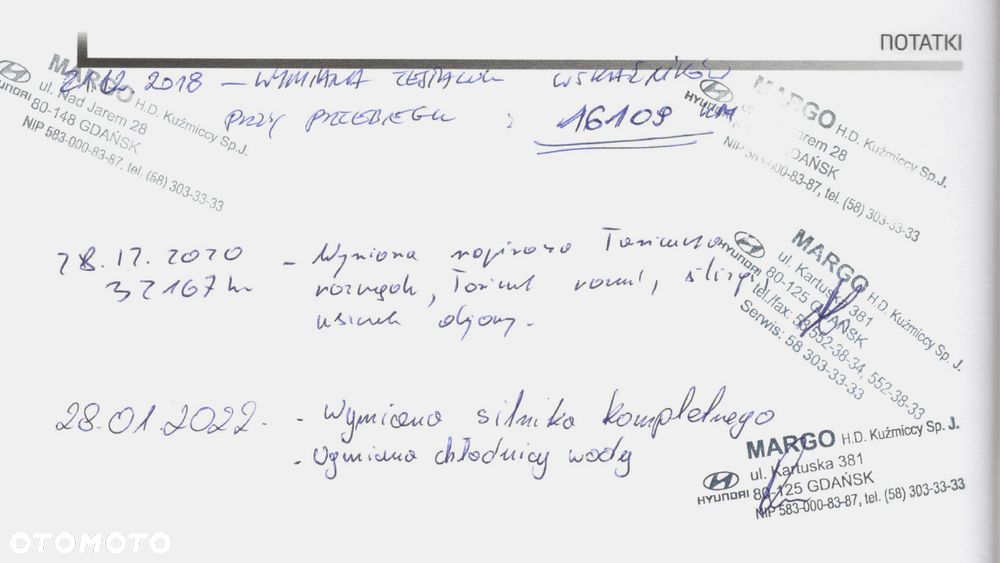 NOTATKI
21.12.2018 – WYMIANA ZESTAWU WSKAŹNIKÓW
PRZY PRZEBIEGU : 16109 KM
MARGO H.D. Kuźmiccy Sp.J.
HYUNDAI
ul. Nad Jarem 28
80-148 GDAŃSK
NIP 583-000-83-87, tel. (58) 303-33-33
MARGO H.D. Kuźmiccy Sp.J.
HYUNDAI
Jarem 28
GDAŃSK
NIP 583-000-83-87, tel. (58) 303-33-33
28.12.2020 – Wymiana napinacza łańcucha
32167 km rozrządu, łańcuch, ślizgi,
olejowy.
MARGO H.D. Kuźmiccy Sp.J.
HYUNDAI
ul. Kartuska 381
80-125 GDAŃSK
tel./fax: 58 552-38-34, 552-38-33
Serwis: 58 303-33-33
28.01.2022. - Wymiana silnika kompletnego
- Wymiana chłodnicy wody
MARGO H.D. Kuźmiccy Sp.J.
ul. Kartuska 381
HYUNDAI 80-125 GDAŃSK
NIP 583-000-83-87, tel. (58) 303-33-33
OTOMOTO